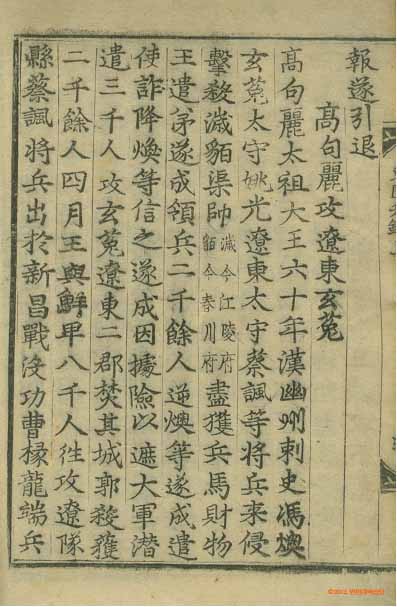 報遂引退
髙句麗攻遼東玄菟
髙句麗太祖大王六十年漢幽州刺史馮煥
玄菟太守姚光遼東太守蔡諷等將兵来侵
擊殺濊貊渠帥濊今江陵府貊今春川府盡獲兵馬財物
王遣弟遂成領兵二千餘人逆煥等遂成遣
使詐降煥等信之遂成因據險以遮大軍潜
遣三千人攻玄菟遼東二郡焚其城郭殺獲
二千餘人四月王與鮮卑八千人徃攻遼隊
縣蔡諷將兵出於新昌戰没功曹椽龍端兵